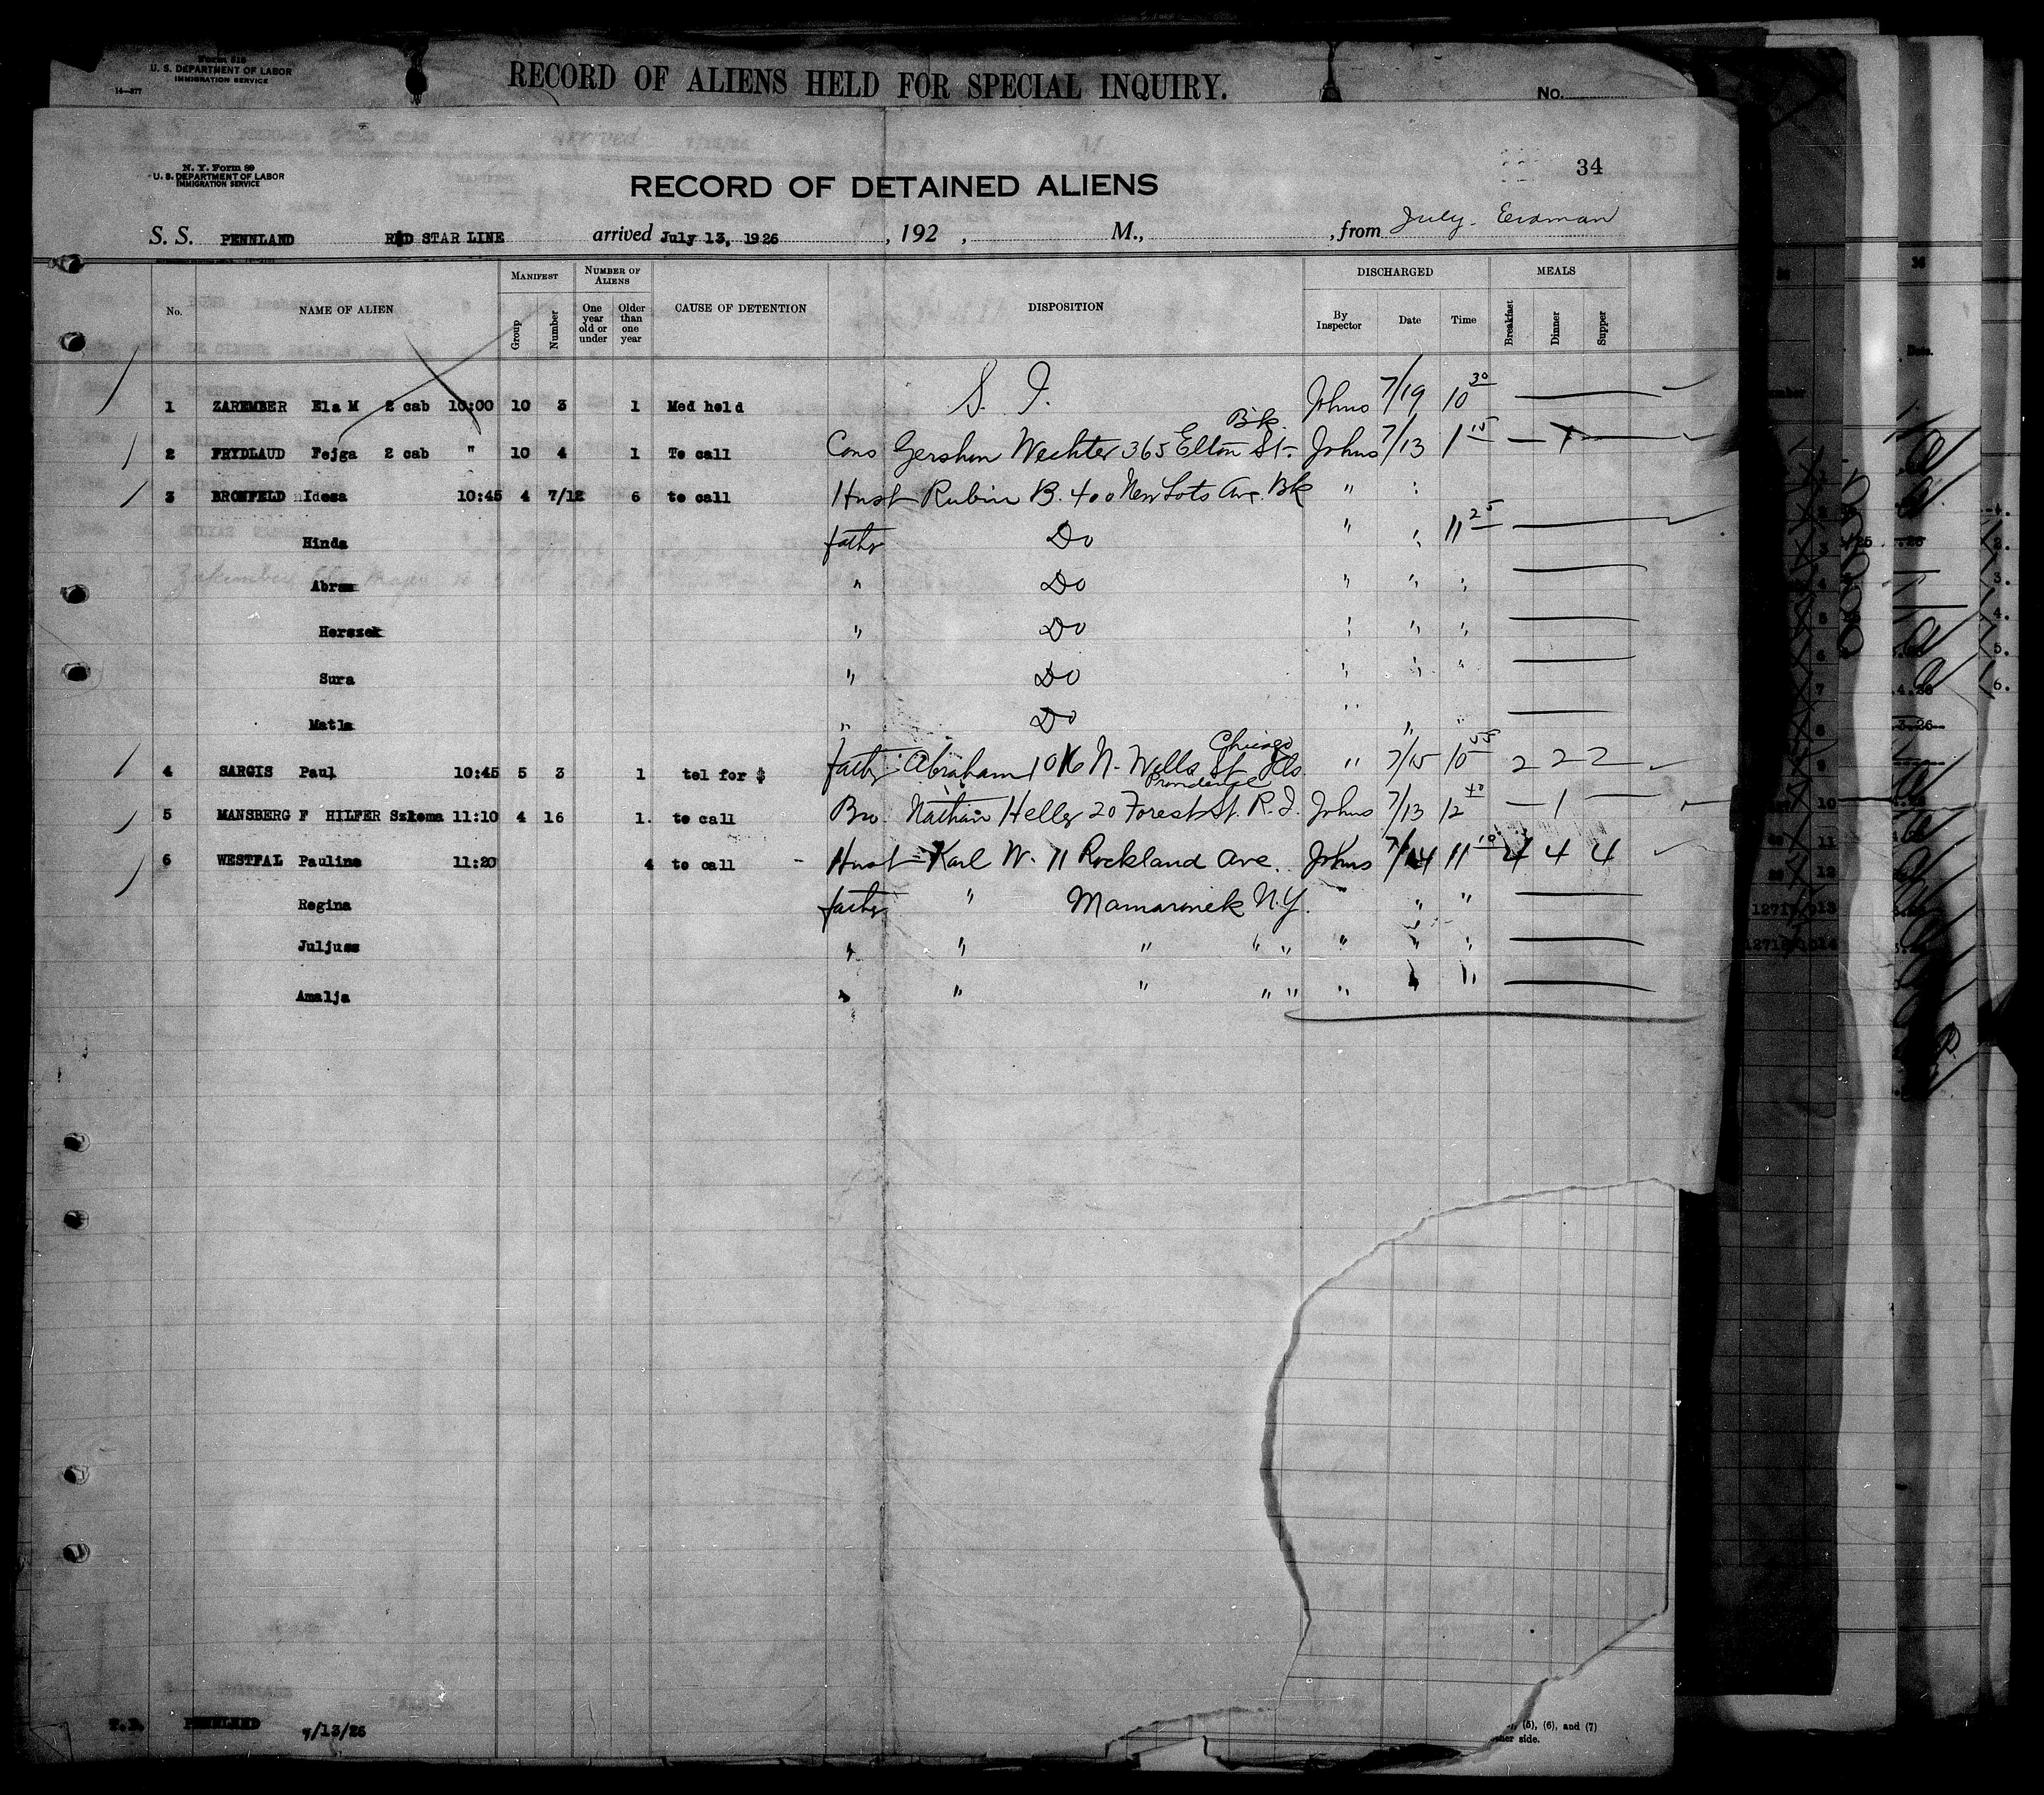 Form 518
U. S. DEPARTMENT OF LABOR
IMMIGRATION SERVICE
14—377
RECORD OF ALIENS HELD FOR SPECIAL INQUIRY.
No.
34
N. Y. Form 89
U. S. DEPARTMENT OF LABOR
IMMIGRATION SERVICE
RECORD OF DETAINED ALIENS
S. S. PENNLAND RED STAR LINE arrived July 13, 1926 , 192 , M., , from July. Erdman
No. NAME OF ALIEN MANIFEST Group Number NUMBER OF ALIENS One year old or under Older than one year CAUSE OF DETENTION DISPOSITION DISCHARGED By Inspector Date Time MEALS Breakfast Dinner Supper
1 ZAREMBER Ela M 2 cab 10:00 10 3 1 Med held S. I. Johns 7/19 10 30
2 FRYDLAUD Fejga 2 cab " 10 4 1 To call Cons Gershon Wechter 365 Elton St. Bk. Johns 7/13 1 15 — 1 —
3 BRONFELD Idesa 10:45 4 7/12 6 to call Husb Rubin B. 400 New Lots Ave. Bk " "
Hinda father Do " " 11 25
Abram " Do " " "
Herszek " Do " " "
Sura " Do " " "
Matla " Do " " "
4 SARGIS Paul 10:45 5 3 1 tel for $ father Abraham 1016 N. Wells St Chicago Ills. " 7/15 10 55 2 2 2
5 MANSBERG F HILFER Szloma 11:10 4 16 1. to call Bro. Nathan Heller 20 Forest St. Providence R. I. Johns 7/13 12 40 — 1 —
6 WESTFAL Pauline 11:20 4 to call Husb Karl W. 11 Rockland Ave. Johns 7/14 11 10 4 4 4
Regina father " Mamaroneck N.Y. " " "
Juljusz " " " " " " " "
Amalja " " " " " " " "
PENNLAND 7/13/26
(5), (6), and (7)
side.